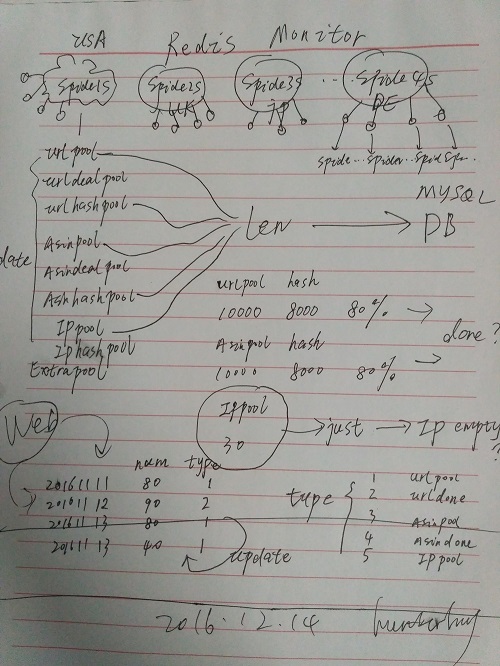 USA Redis Monitor
Spider1s Spider2s Spider3s ... Spide4s
UK JP DE
spide... spider... spid
urlpool
urldealpool
urlhashpool
Asinpool
Asindealpool
Asinhashpool
IPpool
Iphashpool
Extrapool
date
len
MYSQL
DB
urlpool hash
10000 8000 80%
Asinpool hash
10000 8000 80%
done?
Web
IPpool
30
just
Ip empty
?
num type
20161111 80 1
20161112 90 2
20161113 80 1
20161113 40 1
update
type
1 urlpool
2 urldone
3 Asinpool
4 Asindone
5 IPpool
2016.12.14